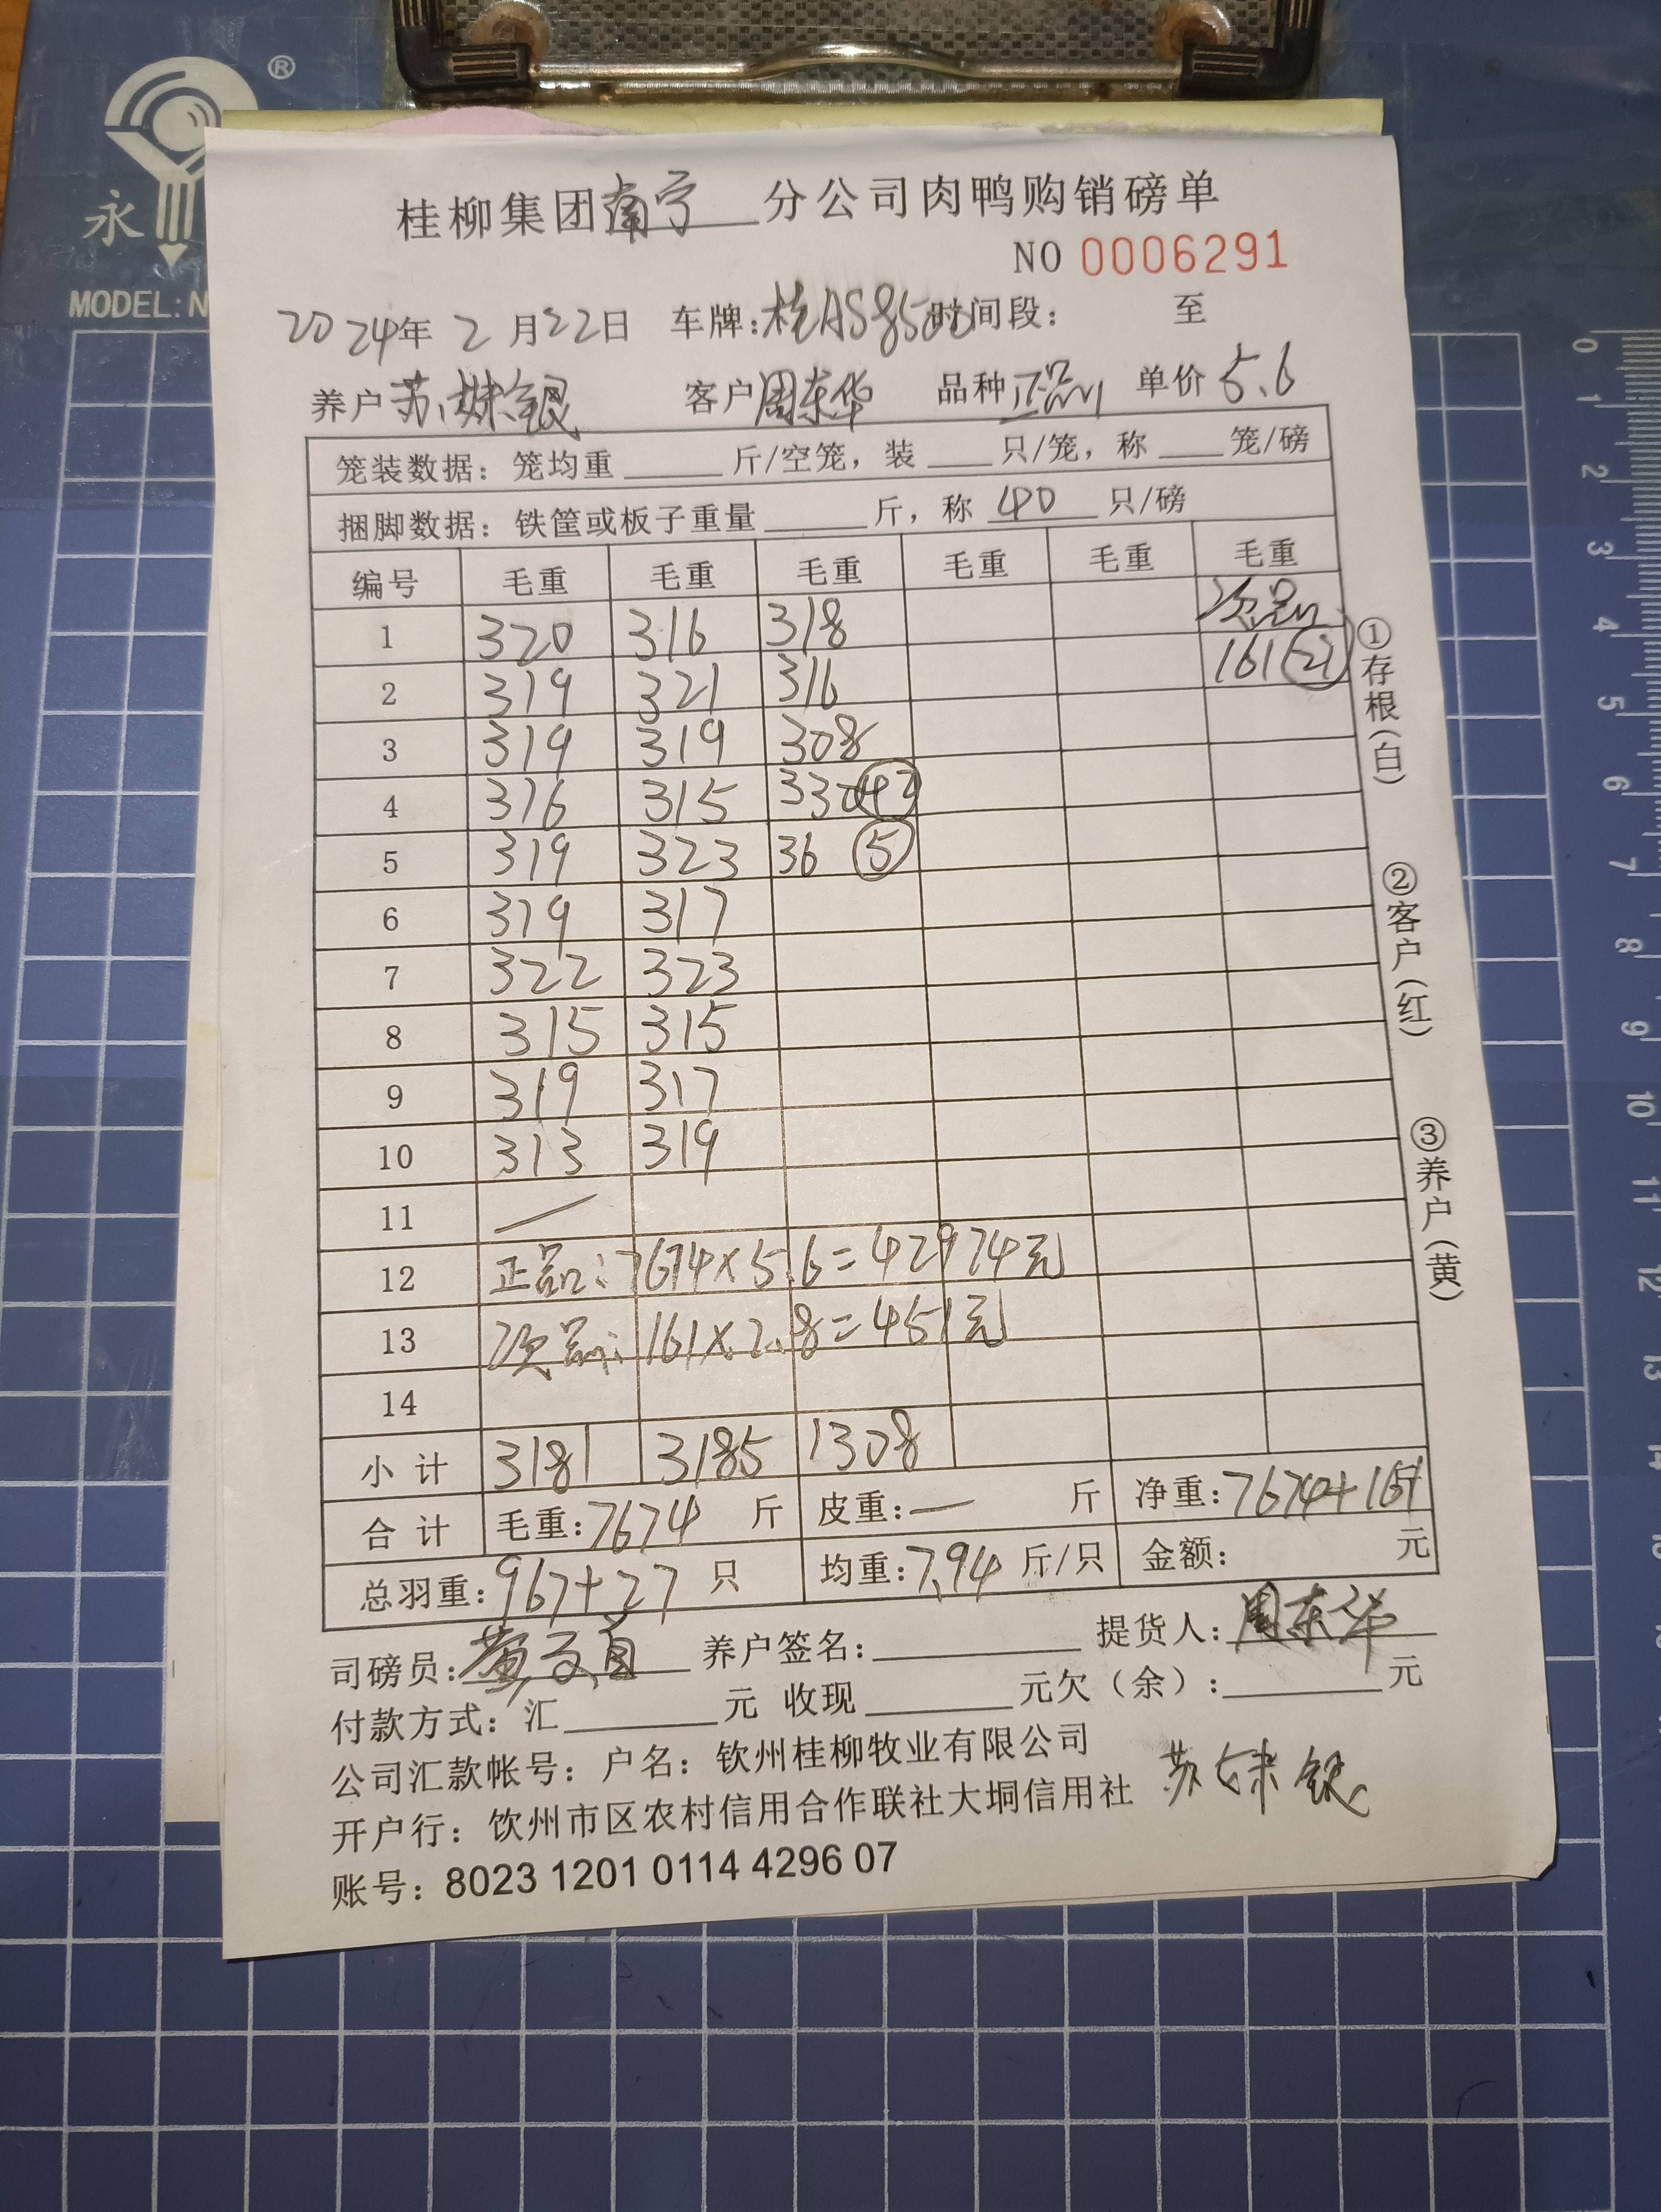 永
®
MODEL:N
桂柳集团南宁分公司肉鸭购销磅单
NO 0006291
2024年2月22日 车牌:桂AS850 时间段: 至
养户 苏妹银 客户 周东华 品种 正品 单价 5.6
笼装数据: 笼均重____斤/空笼, 装____只/笼, 称____笼/磅
捆脚数据: 铁筐或板子重量____斤, 称 40 只/磅
编号 毛重 毛重 毛重 毛重 毛重 毛重
1 320 316 318 次品
2 319 321 316 161 (27)
3 319 319 308
4 316 315 330 (42)
5 319 323 36 (5)
6 319 317
7 322 323
8 315 315
9 319 317
10 313 319
11 —
12 正品:7674×5.6=42974元
13 次品:161×2.8=451元
14
小计 3181 3185 1308
合计 毛重:7674 斤 皮重:— 斤 净重:7674+161斤
总羽重:967+27 只 均重:7.94 斤/只 金额: 元
司磅员: 养户签名: 提货人:周东华
付款方式: 汇____元 收现____元欠(余):____元
公司汇款帐号: 户名: 钦州桂柳牧业有限公司
苏妹银
开户行: 饮州市区农村信用合作联社大垌信用社
账号: 8023 1201 0114 4296 07
①存根(白)
②客户(红)
③养户(黄)
0
1
2
3
4
5
6
7
8
9
10
11
12
13
14